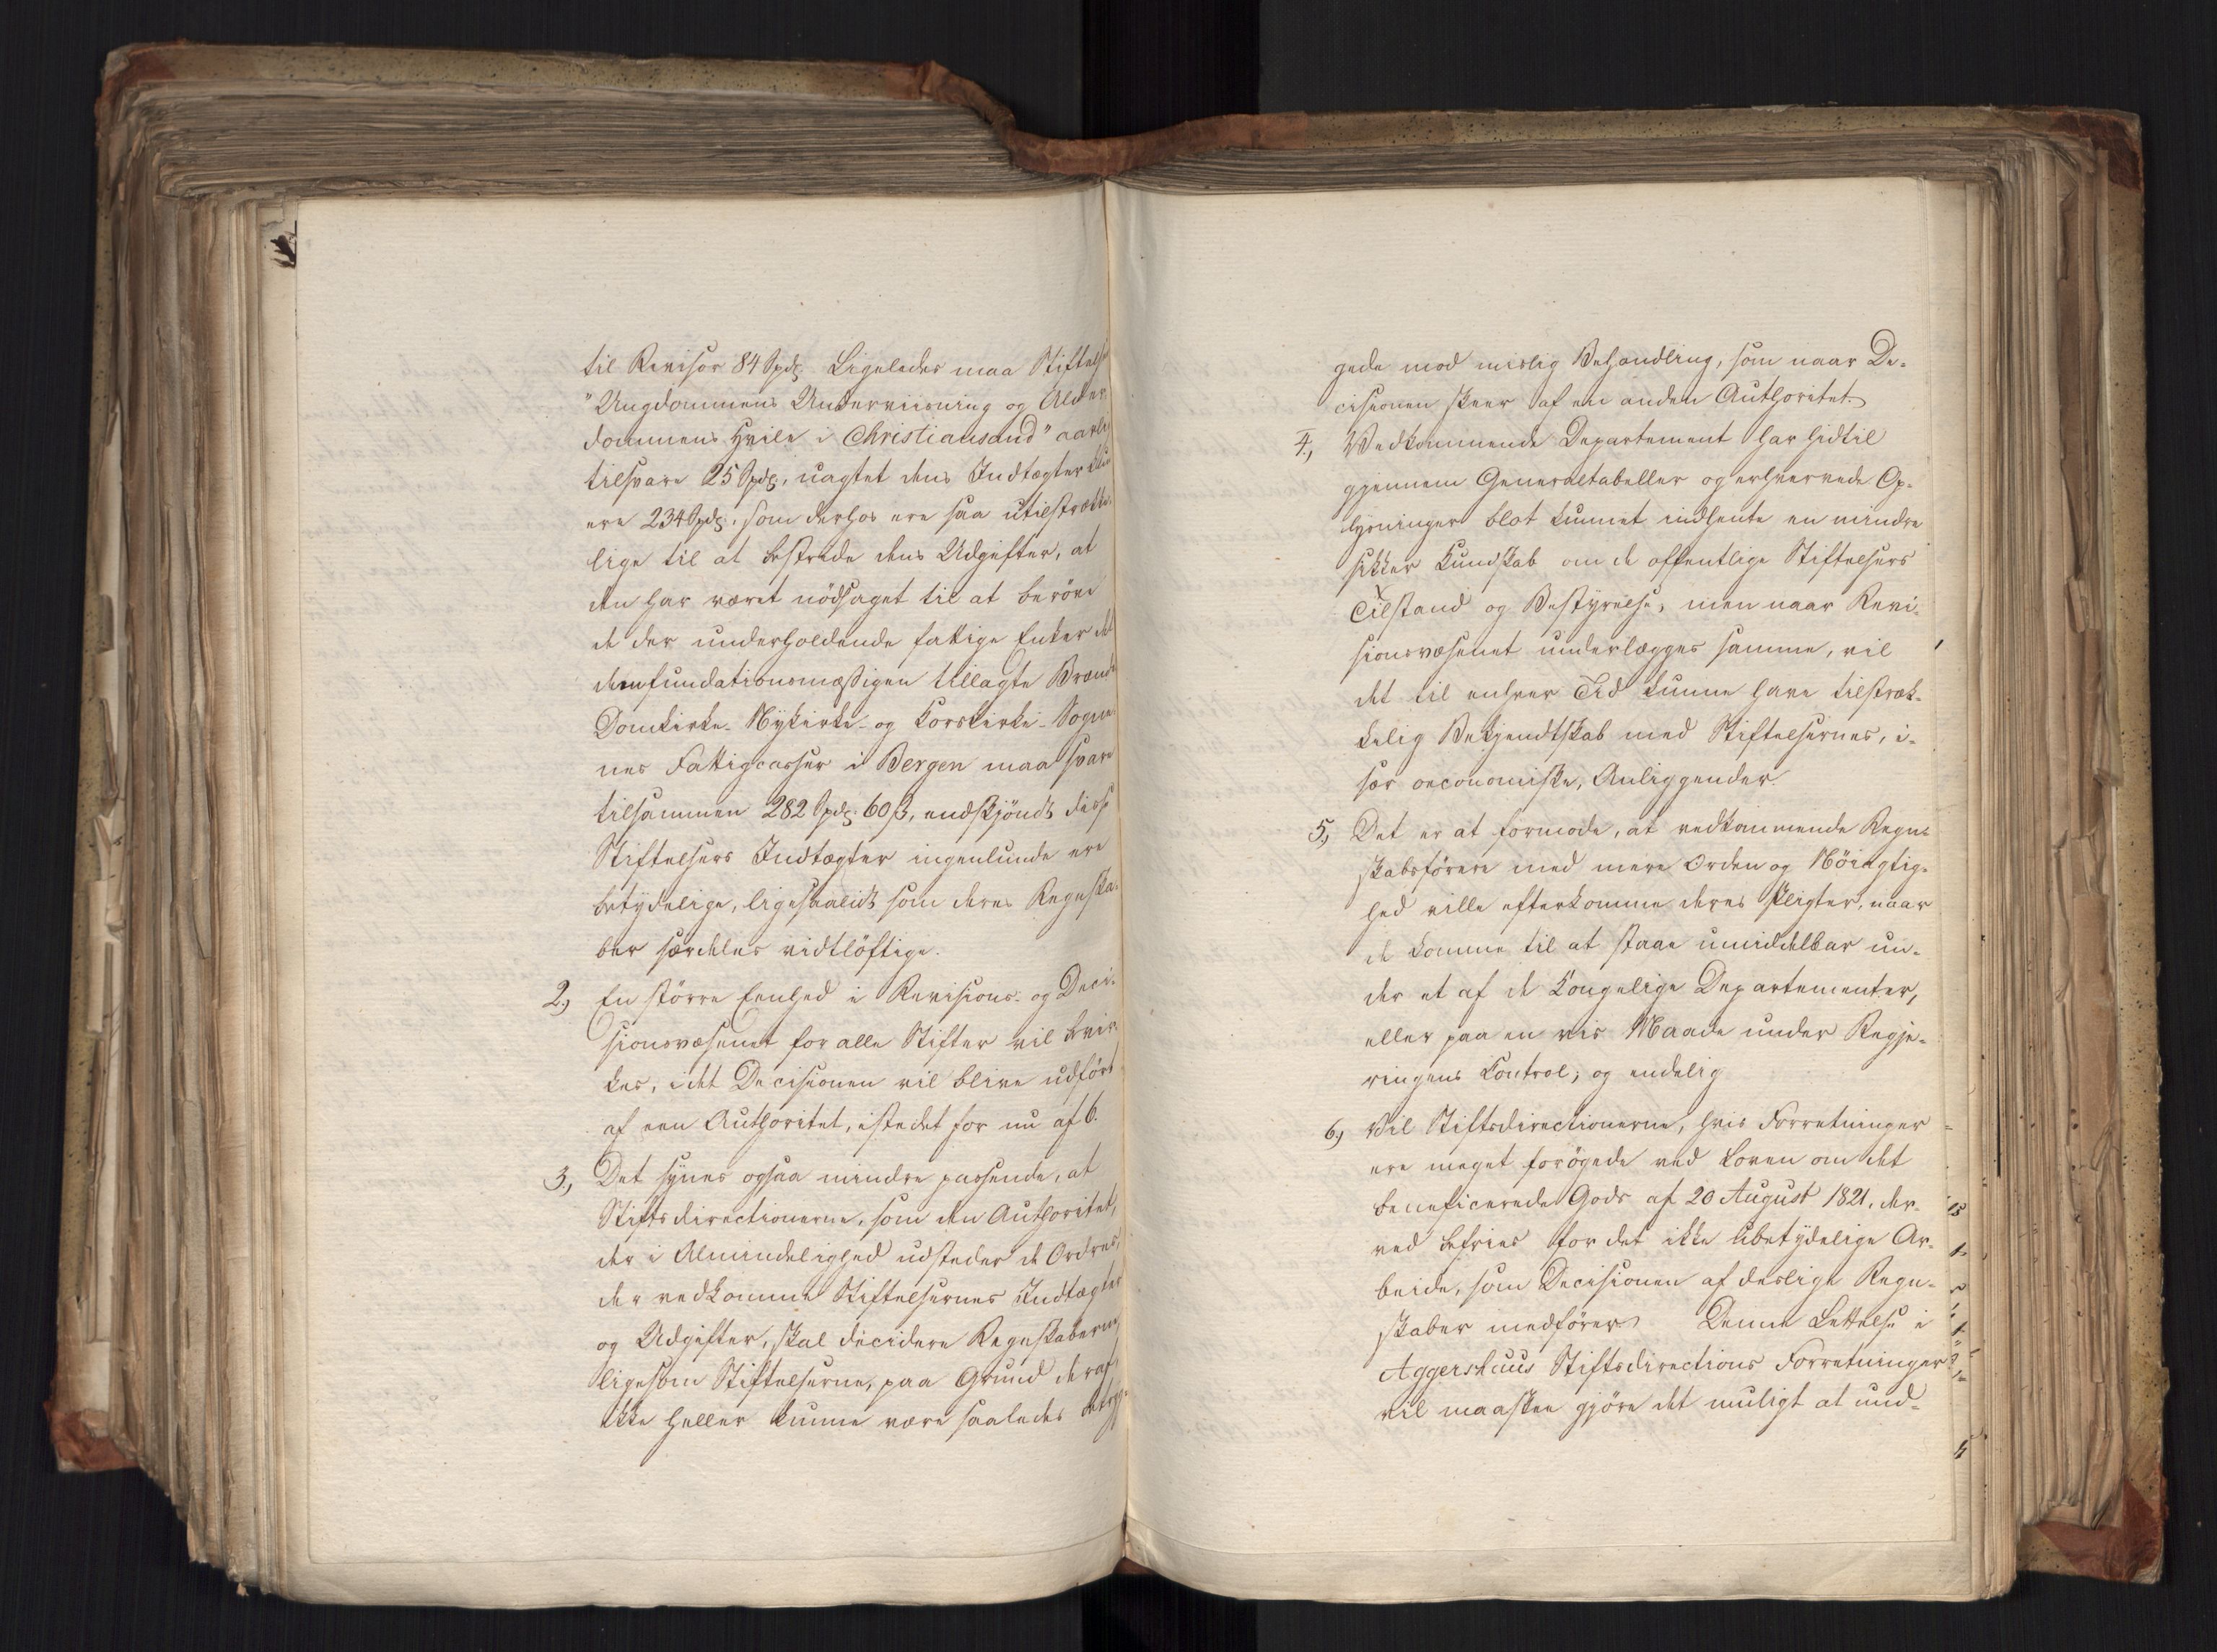 til Revisor 84 Spd. Ligeledes maa Stiftelsen
"Ungdommens Underviisning og Alder-
dommens Hvile i Christiansand" aarlig
tilsvare 25 Spd., uagtet dens Indtægter kun
ere 234 Spd., som derhos ere saa utilstrække-
lige til at bestride dens Udgifter, at
den har været nödsaget til at beröve
de der underholdende fattige Enker det
dem fundationsmæssigen tillagte Brænde
Domkirke- Nykirke- og Korskirke-Sogne-
nes Fattigcasser i Bergen maa svare
tilsammen 282 Spd. 60 ß, endskjöndt disse
Stiftelsers Indtægter ingenlunde ere
betydelige, ligesaalidt som deres Regnska-
ber særdeles vidtlöftige.
2.) En större Eenhed i Revisions- og Deci-
sionsvæsenet for alle Stifter vil bevir-
kes, idet Decisionen vil blive udfört
af een Authoritet, istedet for nu af 6.
3.) Det synes ogsaa mindre passende, at
Stiftsdirectionerne, som den Authoritet,
der i Almindelighed udsteder de Ordres,
der vedkomme Stiftelsernes Indtægter
og Udgifter, skal decidere Regnskaberne
ligesom Stiftelserne, paa Grund deraf,
ikke heller kunne være saaledes betryg-
gede mod mislig Behandling, som naar De-
cisionen skeer af en anden Authoritet.
4.) Vedkommende Departement har hidtil
gjennem Generaltabeller og erhvervede Op-
lysninger blot kunnet indhente en mindre
sikker Kundskab om de offentlige Stiftelsers
Tilstand og Bestyrelse, men naar Revi-
sionsvæsenet underlægges samme, vil
det til enhver Tid kunne have tilstræk-
kelig Bekjendtskab med Stiftelsernes, i-
sær oeconomiske, Anliggender.
5.) Det er at formode, at vedkommende Regn-
skabsförere med mere Orden og Nöiagtig-
hed ville efterkomme deres Pligter, naar
de komme til at staae umiddelbar un-
der et af de Kongelige Departementer,
eller paa en vis Maade under Regje-
ringens Control; og endelig
6.) Vil Stiftsdirectionerne, hvis Forretninger
ere meget forögede ved Loven om det
beneficerede Gods af 20 August 1821, der-
ved befries for det ikke ubetydelige Ar-
beide, som Decisionen af deslige Regn-
skaber medförer. Denne Lettelse i
Aggershuus Stiftsdirections Forretninger
vil maaskee gjöre det muligt at und-